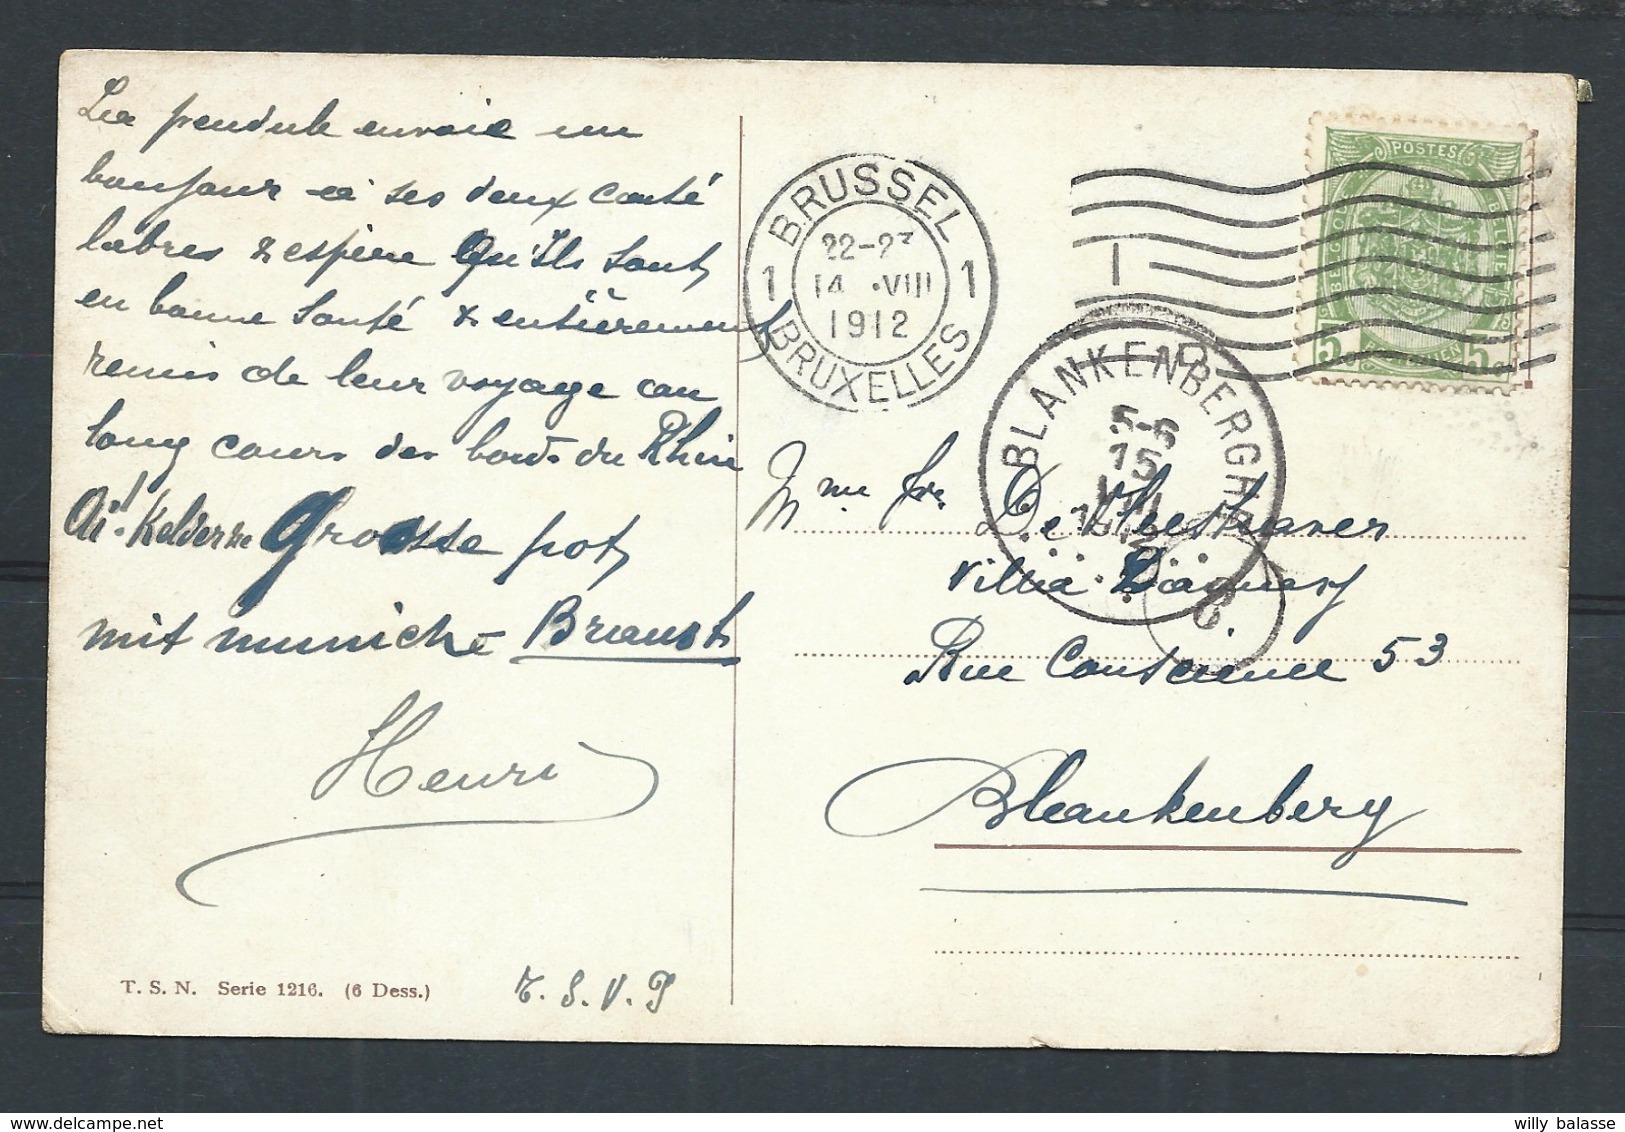 La pendule envoie un
bonjour à ses deux canté
labres & espère Qu'Ils sont
en bonne santé & entièrement
remis de leur voyage au
long cours des bords du Rhin
Ah! Kellerne Grosse pot
mit muniche Braust
Henri
T. S. N. Serie 1216. (6 Dess.)
T. S. V. P
BRUSSEL
1 22-23 1
14 VIII
1912
BRUXELLES
BLANKENBERGHE
5-6
15
VIII
1912
POSTES
BELGIQUE
BELGIË
5 5
6.
Mme fre De
Villa
Rue Conscience 53
Blankenberg
willy balasse